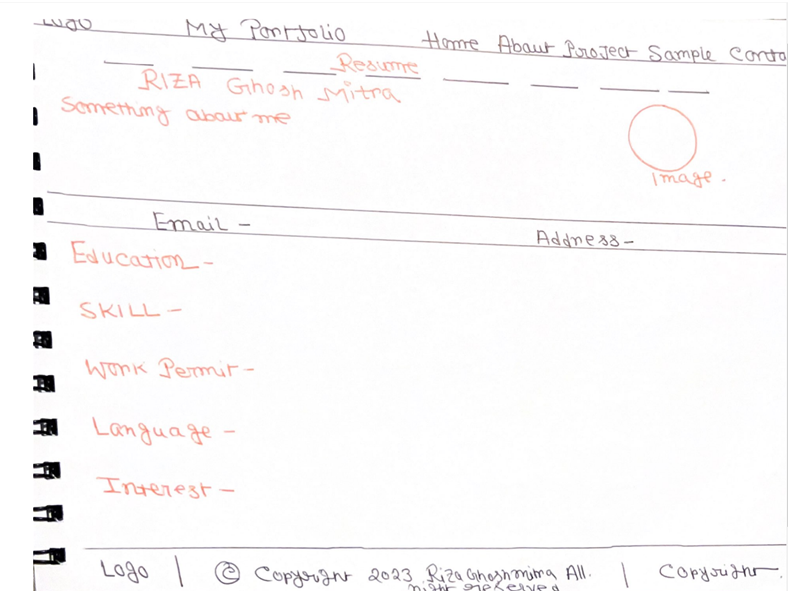 Logo My Portfolio Home About Project Sample Conta
Resume
RIZA Ghosh Mitra
Something about me
Image.
Email -
Address -
Education -
SKILL -
Work Permit -
Language -
Interest -
Logo | © Copyright 2023 Riza Ghoshmitra All. | Copyright.
right reserved